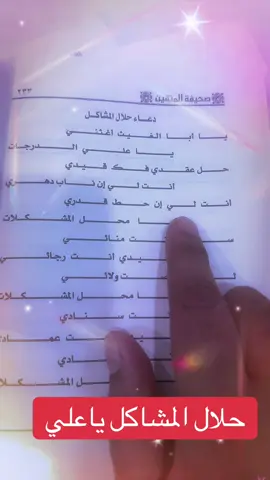 صحيفة المتقين
٢٣٣
دعاء حلال المشاكل
يا ابا الغيث اغثني
يا علي الدرجات
حل عقدي فك قيدي
انت لي إن ناب دهري
أنت لي إن حط قدري
يا محل المشكلات
منائي
سيدي انت رجائي
ولائي
يا محل المشكلات
سنادي
محل المشكلات
حلال المشاكل ياعلي